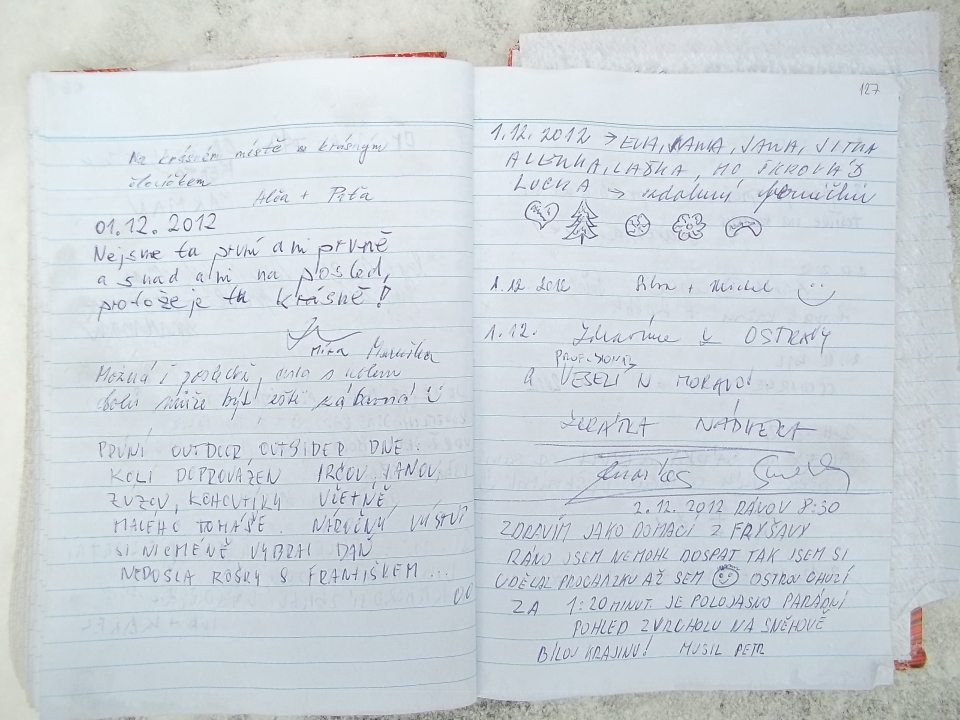 Na krásném místě s krásným
človíčkem
Alča + Píťa
01.12.2012
Nejsme tu první ani prvně
a snad ani na posled,
protože je tu krásně!
Míra Maruška
Možná i poslední, cesta s kolem
dolů může být ještě zábavná
PRVNÍ OUTDOOR, OUTSIDER DNE..
KOLÍ DOPROVÁZEN IRČOU, JANOU,
ZUZOU, KOHOUTIKY VČETNĚ
MALÉHO TOMÁŠE. NÁROČNÝ VÝSTUP
SI NICMÉNĚ VYBRAL DAŇ
NEDOŠLA RÓŠKY S FRANTIŠKEM...
127
1.12.2012 → EVA, JANKA, JANA, JITKA
ALENKA, LAĎKA,
LUCKA →
1.12 2012 + Michel
1.12. Zdravíme z OSTRAVY
PROFESIONÁL
A VESELÍ N MORAVOU
NÁDHERA
2.12.2012 RÁNO V 8:30
ZDRAVÍM JAKO DOMACÍ Z FRYŠAVY
RÁNO JSEM NEMOHL DOSPAT TAK JSEM SI
UDĚLAL PROCHÁZKU AŽ SEM OSTROU CHUZÍ
ZA 1:20 MINUT. JE POLOJASNO PARÁDNÍ
POHLED Z VRCHOLU NA SNĚHOVĚ
BÍLOU KRAJINU! MUSIL PETR